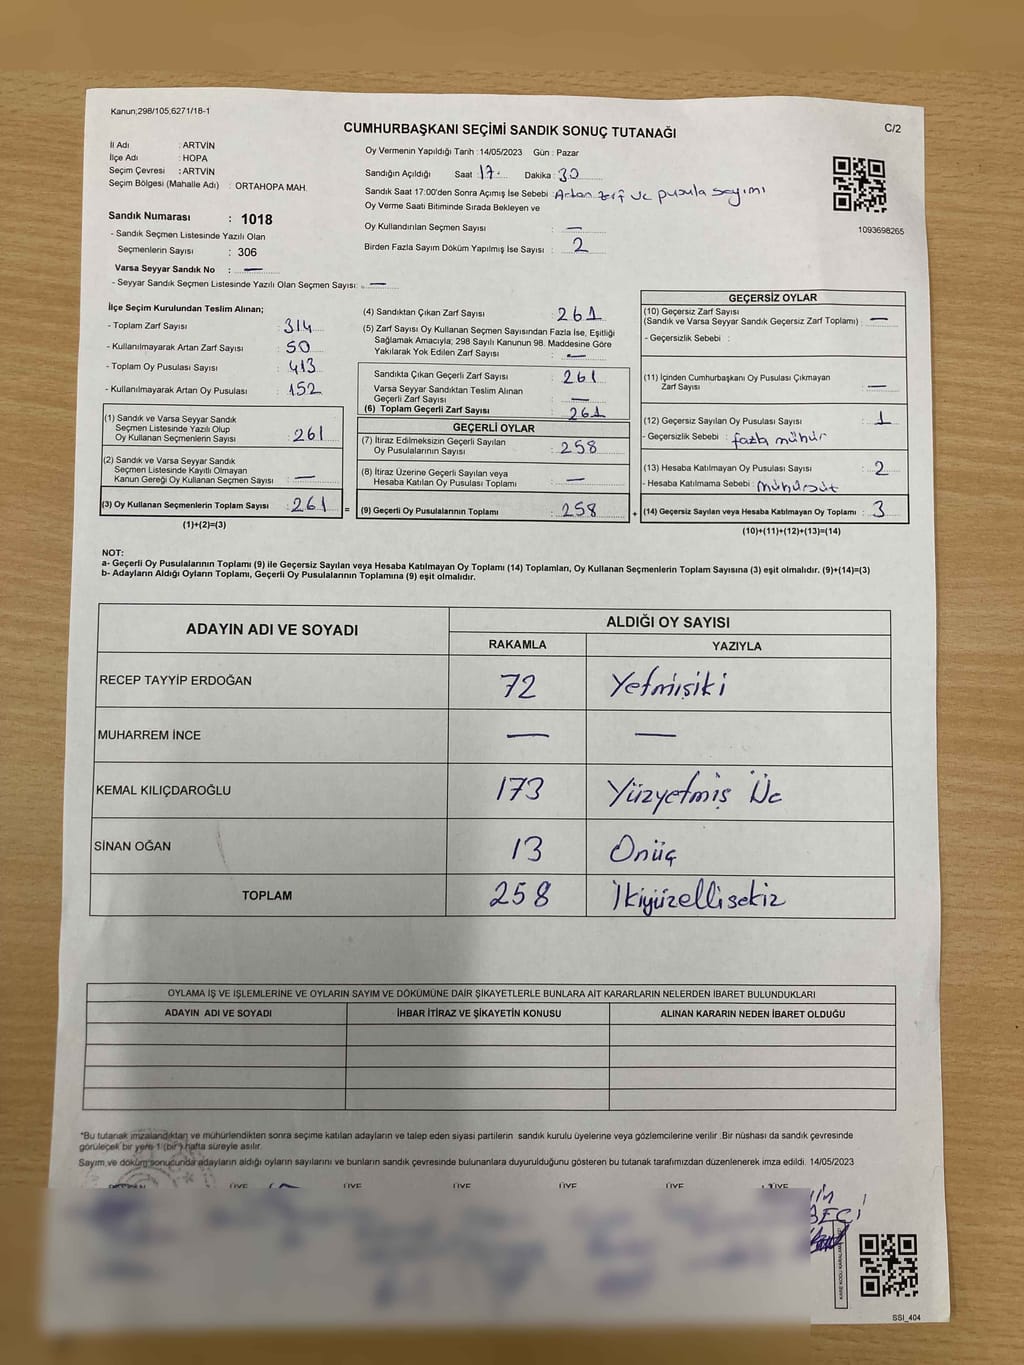 Kanun;298/105,6271/18-1
C/2
CUMHURBAŞKANI SEÇİMİ SANDIK SONUÇ TUTANAĞI
İl Adı : ARTVİN
İlçe Adı : HOPA
Seçim Çevresi : ARTVİN
Seçim Bölgesi (Mahalle Adı) : ORTAHOPA MAH.
Sandık Numarası : 1018
- Sandık Seçmen Listesinde Yazılı Olan
Seçmenlerin Sayısı : 306
Varsa Seyyar Sandık No : —
- Seyyar Sandık Seçmen Listesinde Yazılı Olan Seçmen Sayısı: —
Oy Vermenin Yapıldığı Tarih : 14/05/2023 Gün : Pazar
Sandığın Açıldığı Saat 17 Dakika : 30
Sandık Saat 17:00'den Sonra Açımış İse Sebebi Artan zrf ve pusula sayımı
Oy Verme Saati Bitiminde Sırada Bekleyen ve
Oy Kullandırılan Seçmen Sayısı : —
Birden Fazla Sayım Döküm Yapılmış İse Sayısı : 2
1093698265
İlçe Seçim Kurulundan Teslim Alınan;
- Toplam Zarf Sayısı : 314
- Kullanılmayarak Artan Zarf Sayısı : 50
- Toplam Oy Pusulası Sayısı : 413
- Kullanılmayarak Artan Oy Pusulası : 152
(1) Sandık ve Varsa Seyyar Sandık
Seçmen Listesinde Yazılı Olup
Oy Kullanan Seçmenlerin Sayısı : 261
(2) Sandık ve Varsa Seyyar Sandık
Seçmen Listesinde Kayıtlı Olmayan
Kanun Gereği Oy Kullanan Seçmen Sayısı : —
(3) Oy Kullanan Seçmenlerin Toplam Sayısı : 261 =
(1)+(2)=(3)
(4) Sandıktan Çıkan Zarf Sayısı : 261
(5) Zarf Sayısı Oy Kullanan Seçmen Sayısından Fazla İse, Eşitliği
Sağlamak Amacıyla; 298 Sayılı Kanunun 98. Maddesine Göre
Yakılarak Yok Edilen Zarf Sayısı : —
Sandıkta Çıkan Geçerli Zarf Sayısı : 261
Varsa Seyyar Sandıktan Teslim Alınan
Geçerli Zarf Sayısı : —
(6) Toplam Geçerli Zarf Sayısı : 261
GEÇERLİ OYLAR
(7) İtiraz Edilmeksizin Geçerli Sayılan
Oy Pusulalarının Sayısı : 258
(8) İtiraz Üzerine Geçerli Sayılan veya
Hesaba Katılan Oy Pusulası Toplamı : —
(9) Geçerli Oy Pusulalarının Toplamı : 258 +
GEÇERSİZ OYLAR
(10) Geçersiz Zarf Sayısı
(Sandık ve Varsa Seyyar Sandık Geçersiz Zarf Toplamı) : —
- Geçersizlik Sebebi :
(11) İçinden Cumhurbaşkanı Oy Pusulası Çıkmayan
Zarf Sayısı : —
(12) Geçersiz Sayılan Oy Pusulası Sayısı : 1
- Geçersizlik Sebebi : fazla mühür
(13) Hesaba Katılmayan Oy Pusulası Sayısı : 2
- Hesaba Katılmama Sebebi : mühürsüz
(14) Geçersiz Sayılan veya Hesaba Katılmayan Oy Toplamı : 3
(10)+(11)+(12)+(13)=(14)
NOT:
a- Geçerli Oy Pusulalarının Toplamı (9) ile Geçersiz Sayılan veya Hesaba Katılmayan Oy Toplamı (14) Toplamları, Oy Kullanan Seçmenlerin Toplam Sayısına (3) eşit olmalıdır. (9)+(14)=(3)
b- Adayların Aldığı Oyların Toplamı, Geçerli Oy Pusulalarının Toplamına (9) eşit olmalıdır.
ADAYIN ADI VE SOYADI
ALDIĞI OY SAYISI
RAKAMLA YAZIYLA
RECEP TAYYİP ERDOĞAN 72 Yetmişiki
MUHARREM İNCE — —
KEMAL KILIÇDAROĞLU 173 Yüzyetmiş Üç
SİNAN OĞAN 13 Onüç
TOPLAM 258 İkiyüzellisekiz
OYLAMA İŞ VE İŞLEMLERİNE VE OYLARIN SAYIM VE DÖKÜMÜNE DAİR ŞİKAYETLERLE BUNLARA AİT KARARLARIN NELERDEN İBARET BULUNDUKLARI
ADAYIN ADI VE SOYADI İHBAR İTİRAZ VE ŞİKAYETİN KONUSU ALINAN KARARIN NEDEN İBARET OLDUĞU
*Bu tutanak imzalandıktan ve mühürlendikten sonra seçime katılan adayların ve talep eden siyasi partilerin sandık kurulu üyelerine veya gözlemcilerine verilir .Bir nüshası da sandık çevresinde
görülecek bir yere 1 (bir ) hafta süreyle asılır.
Sayım ve döküm sonucunda adayların aldığı oyların sayılarını ve bunların sandık çevresinde bulunanlara duyurulduğunu gösteren bu tutanak tarafımızdan düzenlenerek imza edildi. 14/05/2023
ÜYE ÜYE ÜYE ÜYE ÜYE ÜYE
SSI_404